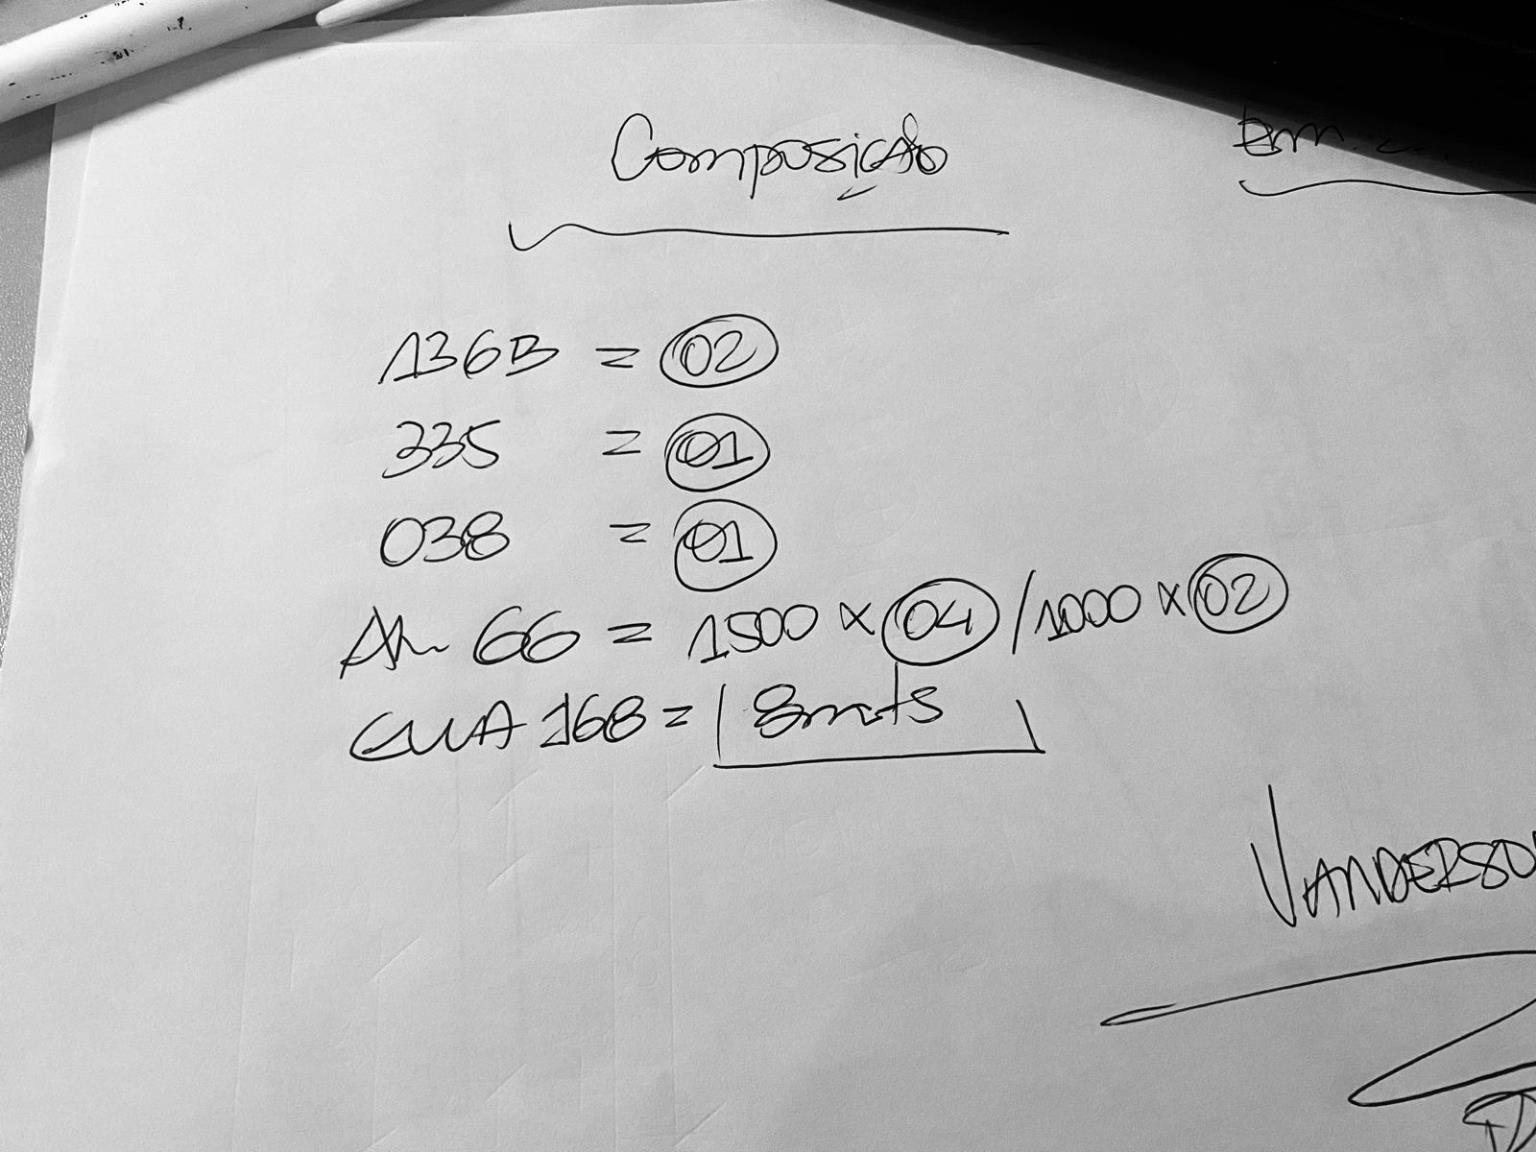 Composição
136B = 02
335 = 01
038 = 01
AL 66 = 1500 x 04 / 1000 x 02
GUA 168 = 8mts
VANDERSON